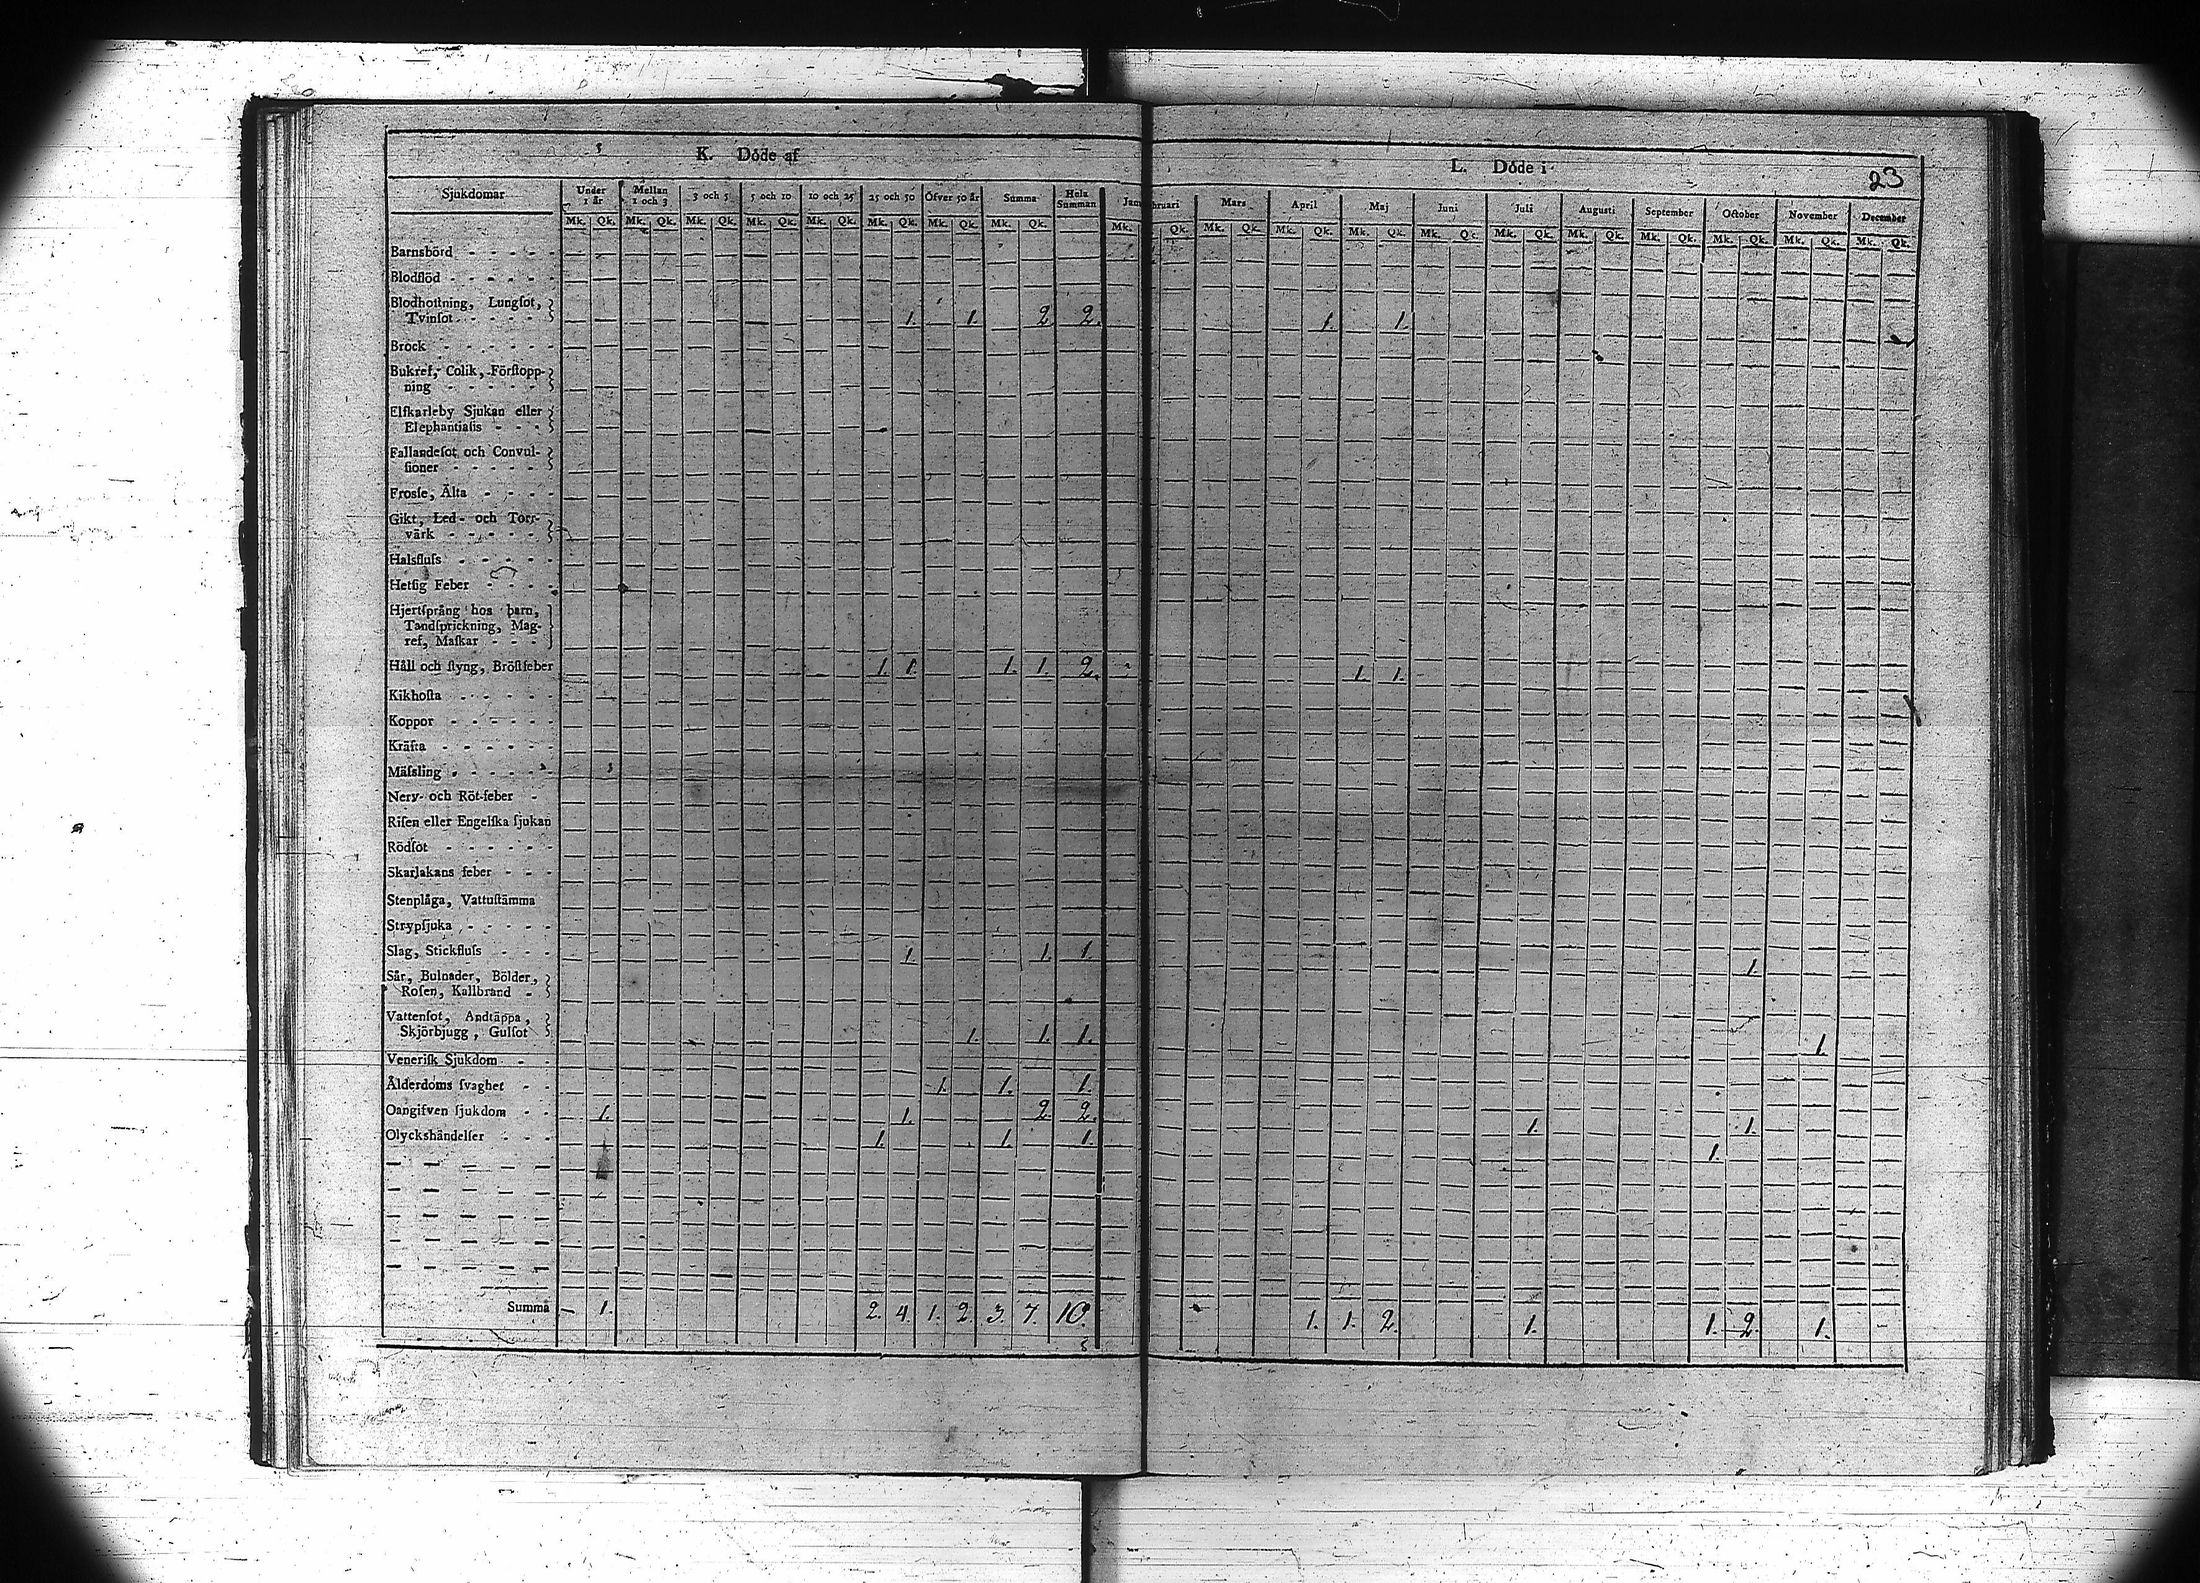 K. Döde af
Sjukdomar Under 1 år Mellan 1 och 3 3 och 5 5 och 10 10 och 25 25 och 50 Öfver 50 år Summa Hela Summan
Mk. Qk. Mk. Qk. Mk. Qk. Mk. Qk. Mk. Qk. Mk. Qk. Mk. Qk. Mk. Qk.
Barnsbörd - - - - -
Blodflöd - - - - - -
Blodhostning, Lungſot,
Tvinſot - - - - - 1. 1. 2. 2.
Bråck - - - - - -
Bukref, Colik, Förſtopp-
ning - - - - -
Elfkarleby Sjukan eller
Elephantiaſis - - -
Fallandeſot och Convul-
ſioner - - - - -
Frosſe, Älta - - - -
Gikt, Led- och Torr-
värk - - - - -
Halsfluſs - - - - -
Hetſig Feber - - - -
Hjertſprång hos barn,
Tandſprickning, Mag-
ref, Maſkar - - -
Håll och ſtyng, Bröſtfeber 1. 1. 1. 1. 2.
Kikhoſta - - - - -
Koppor - - - - - -
Kräfta - - - - - -
Mäſsling - - - - - -
Nerv- och Röt-feber -
Riſen eller Engelſka ſjukan
Rödſot - - - - - -
Skarlakans feber - - -
Stenplåga, Vattuſtämma
Strypſjuka - - - - -
Slag, Stickfluſs - - - 1. 1. 1.
Sår, Bulnader, Bölder,
Roſen, Kallbrand -
Vattenſot, Andtäppa,
Skjörbjugg, Gulſot 1. 1. 1.
Veneriſk Sjukdom - -
Ålderdoms ſvaghet - - 1. 1. 1.
Oangifven ſjukdom - - 1. 1. 2. 2.
Olyckshändelſer - - - 1. 1. 1.
Summa - 1. 2. 4. 1. 2. 3. 7. 10.
L. Döde i
23
Jan bruari Mars April Maj Juni Juli Auguſti September October November December
Mk. Qk. Mk. Qk. Mk. Qk. Mk. Qk. Mk. Qk. Mk. Qk. Mk. Qk. Mk. Qk. Mk. Qk. Mk. Qk. Mk. Qk.
1. 1.
1. 1.
1.
1.
1. 1.
1.
1. 1. 2. 1. 1. 2. 1.